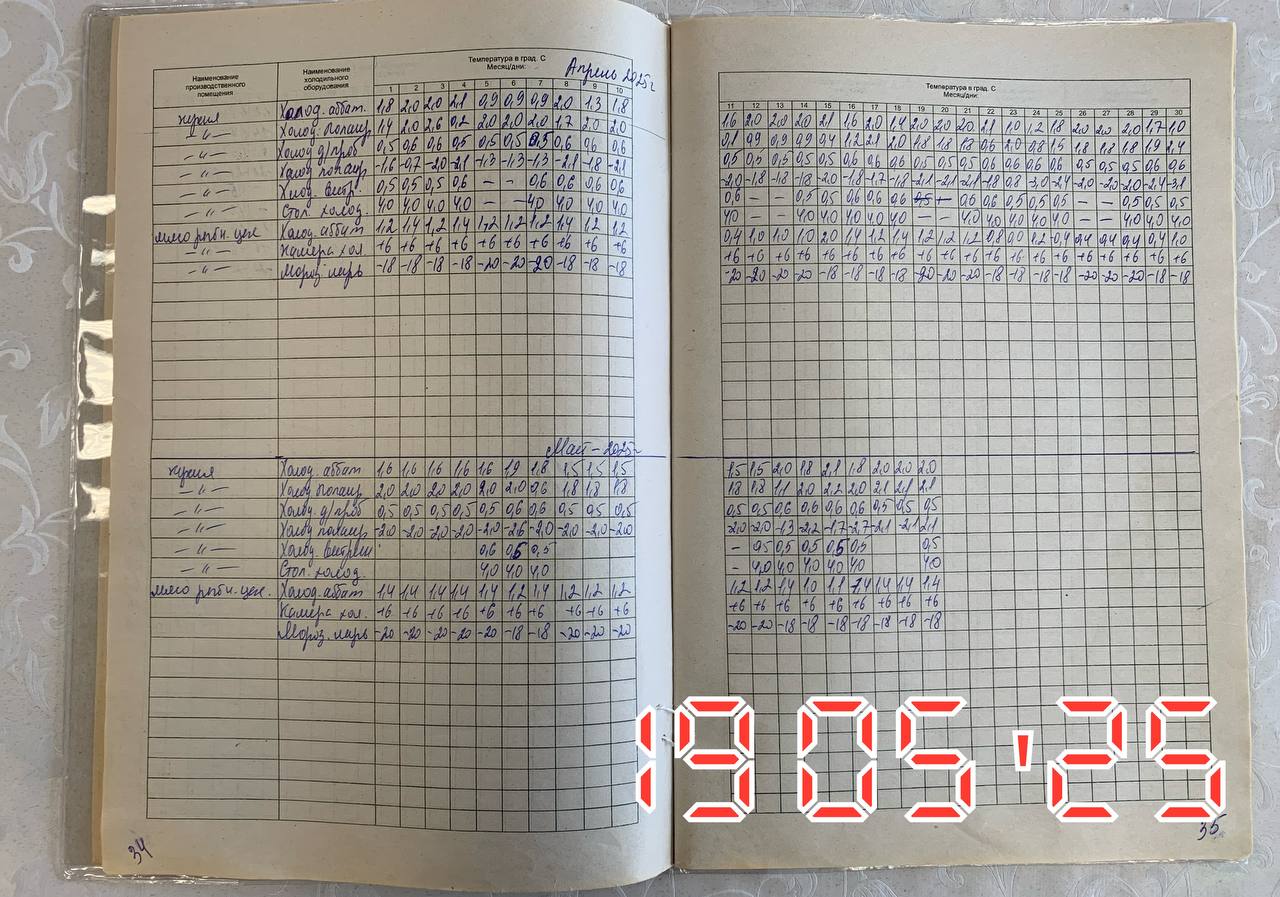 Наименование производственного помещения
Наименование холодильного оборудования
Температура в град. С
Месяц/дни:
Апрель 2025г
1 2 3 4 5 6 7 8 9 10
кухня Холод. аббат. 1,8 2,0 2,0 2,1 0,9 0,9 0,9 2,0 1,3 1,8
— " — Холод. 1,4 2,0 2,6 0,2 2,0 2,0 2,0 1,7 2,0 2,0
— " — Холод д/проб 0,5 0,6 0,6 0,5 0,5 0,5 0,5 0,6 0,6 0,6
— " — Холод -1,6 -0,7 -2,0 -2,1 -1,3 -1,3 -1,3 -2,1 -1,8 -2,1
— " — Холод. витр. 0,5 0,5 0,5 0,6 — — 0,6 0,6 0,6 0,6
— " — Стол. холод. 4,0 4,0 4,0 4,0 — — 4,0 4,0 4,0 4,0
мясо рыбн. цех Холод. аббат 1,2 1,4 1,2 1,4 1,2 1,2 1,2 1,4 1,2 1,2
— " — Камера хол. +6 +6 +6 +6 +6 +6 +6 +6 +6 +6
— " — Мороз. ларь -18 -18 -18 -18 -20 -20 -20 -18 -18 -18
Май – 2025г
кухня Холод. аббат 1,6 1,6 1,6 1,6 1,6 1,9 1,8 1,5 1,5 1,5
— " — Холод 2,0 2,0 2,0 2,0 2,0 2,0 0,6 1,8 1,8 1,8
— " — Холод. д/проб 0,5 0,5 0,5 0,5 0,5 0,6 0,6 0,5 0,5 0,5
— " — Холод -2,0 -2,0 -2,0 -2,0 -2,0 -2,6 -2,0 -2,0 -2,0 -2,0
— " — Холод. витрин 0,6 0,5 0,5
— " — Стол. холод. 4,0 4,0 4,0
мясо рыбн. цех. Холод. аббат 1,4 1,4 1,4 1,4 1,4 1,2 1,4 1,2 1,2 1,2
Камера хол. +6 +6 +6 +6 +6 +6 +6 +6 +6 +6
Мороз. ларь -20 -20 -20 -20 -20 -18 -18 -20 -20 -20
34
Температура в град. С
Месяц/дни:
11 12 13 14 15 16 17 18 19 20 21 22 23 24 25 26 27 28 29 30
1,6 2,0 2,0 2,0 2,1 1,6 2,0 1,4 2,0 2,0 2,0 2,1 1,0 1,2 1,8 2,0 2,0 2,0 1,7 1,0
0,1 0,9 0,9 0,9 0,4 1,2 2,1 2,0 1,8 1,8 1,8 0,6 2,0 0,8 1,5 1,8 1,8 1,8 1,9 2,4
0,5 0,5 0,5 0,5 0,5 0,6 0,6 0,6 0,5 0,5 0,5 0,6 0,6 0,6 0,6 0,5 0,5 0,5 0,6 0,6
-2,0 -1,8 -1,8 -1,8 -2,0 -1,8 -1,7 -1,8 -2,1 -2,1 -2,1 -1,8 0,8 -3,0 -2,4 -2,0 -2,0 -2,0 -2,4 -3,1
0,6 — — 0,5 0,5 0,6 0,6 0,6 0,5 — 0,6 0,6 0,5 0,5 0,5 — — 0,5 0,5 0,5
4,0 — — 4,0 4,0 4,0 4,0 4,0 — — 4,0 4,0 4,0 4,0 4,0 — — 4,0 4,0 4,0
0,4 1,0 1,0 1,0 2,0 1,4 1,2 1,4 1,2 1,2 1,2 0,8 0,0 1,2 0,4 0,4 0,4 0,4 0,4 1,0
+6 +6 +6 +6 +6 +6 +6 +6 +6 +6 +6 +6 +6 +6 +6 +6 +6 +6 +6 +6
-20 -20 -20 -20 -18 -18 -18 -18 -20 -20 -20 -18 -18 -18 -18 -20 -20 -20 -18 -18
1,5 1,5 2,0 1,8 2,1 1,8 2,0 2,0 2,0
1,8 1,8 1,1 2,0 2,2 2,0 2,1 2,1 2,1
0,5 0,5 0,6 0,6 0,6 0,6 0,5 0,5 0,5
-2,0 -2,0 -1,3 -2,2 -1,7 -2,7 -2,1 -2,1 2,1
— 0,5 0,5 0,5 0,5 0,5 0,5
— 4,0 4,0 4,0 4,0 4,0 4,0
1,2 1,2 1,4 1,0 1,1 1,4 1,4 1,4 1,4
+6 +6 +6 +6 +6 +6 +6 +6 +6
-20 -20 -18 -18 -18 -18 -18 -18 -18
19 05 '25
35